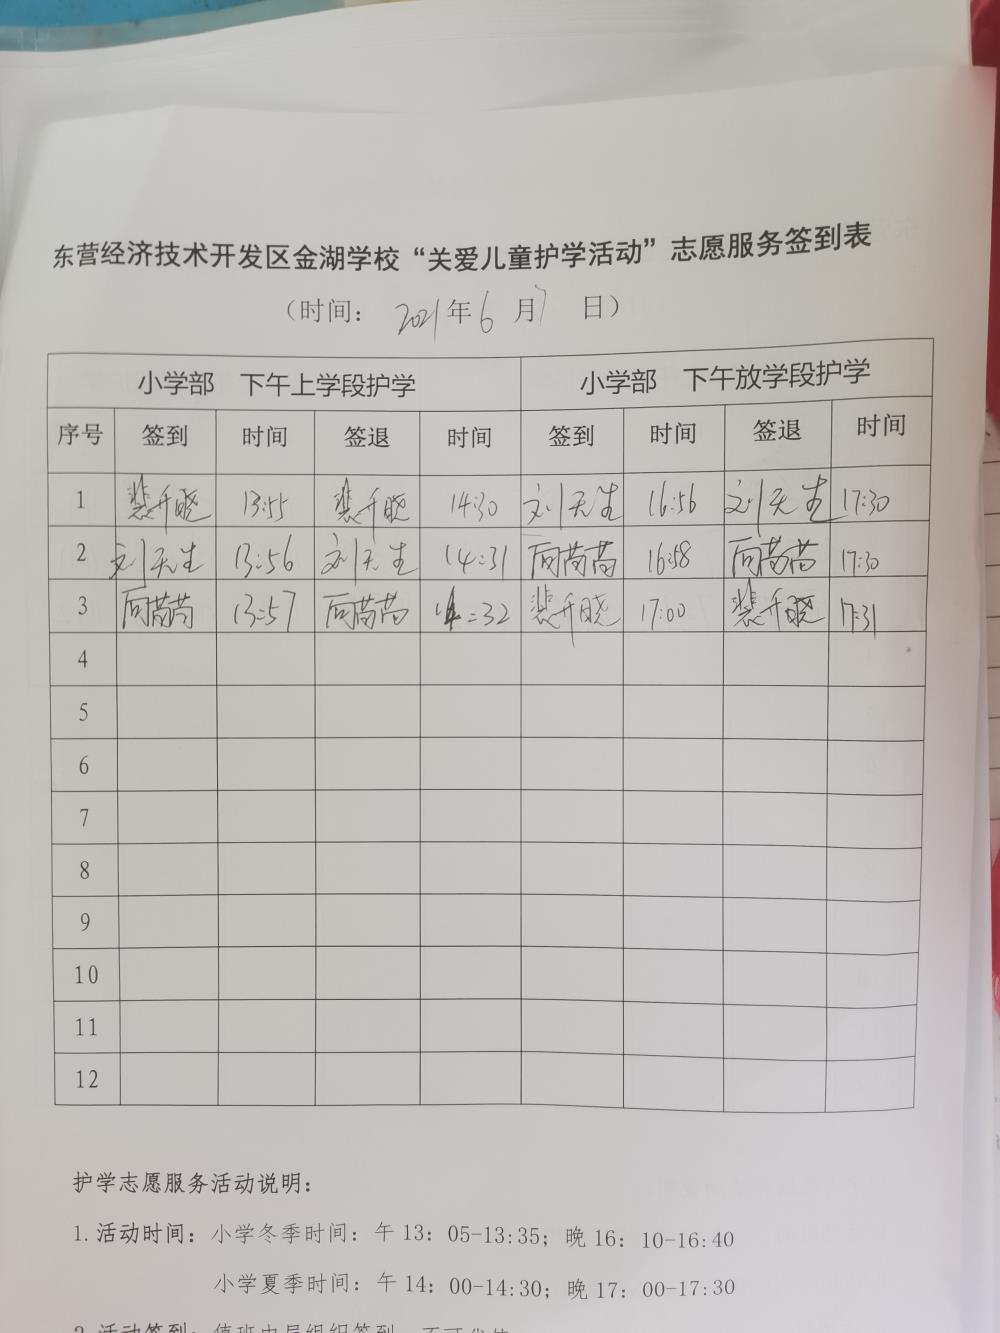 东营经济技术开发区金湖学校“关爱儿童护学活动”志愿服务签到表
（时间： 2021年6月7日）
小学部 下午上学段护学 小学部 下午放学段护学
序号 签到 时间 签退 时间 签到 时间 签退 时间
1 裴千晓 13:55 裴千晓 14:30 刘天生 16:56 刘天生 17:30
2 刘天生 13:56 刘天生 14:31 向苗苗 16:58 向苗苗 17:30
3 向苗苗 13:57 向苗苗 14:32 裴千晓 17:00 裴千晓 17:31
4
5
6
7
8
9
10
11
12
护学志愿服务活动说明：
1.活动时间：小学冬季时间：午13：05-13:35；晚16：10-16:40
小学夏季时间：午14：00-14:30；晚17：00-17:30
2.活动签到：值班中层组织签到